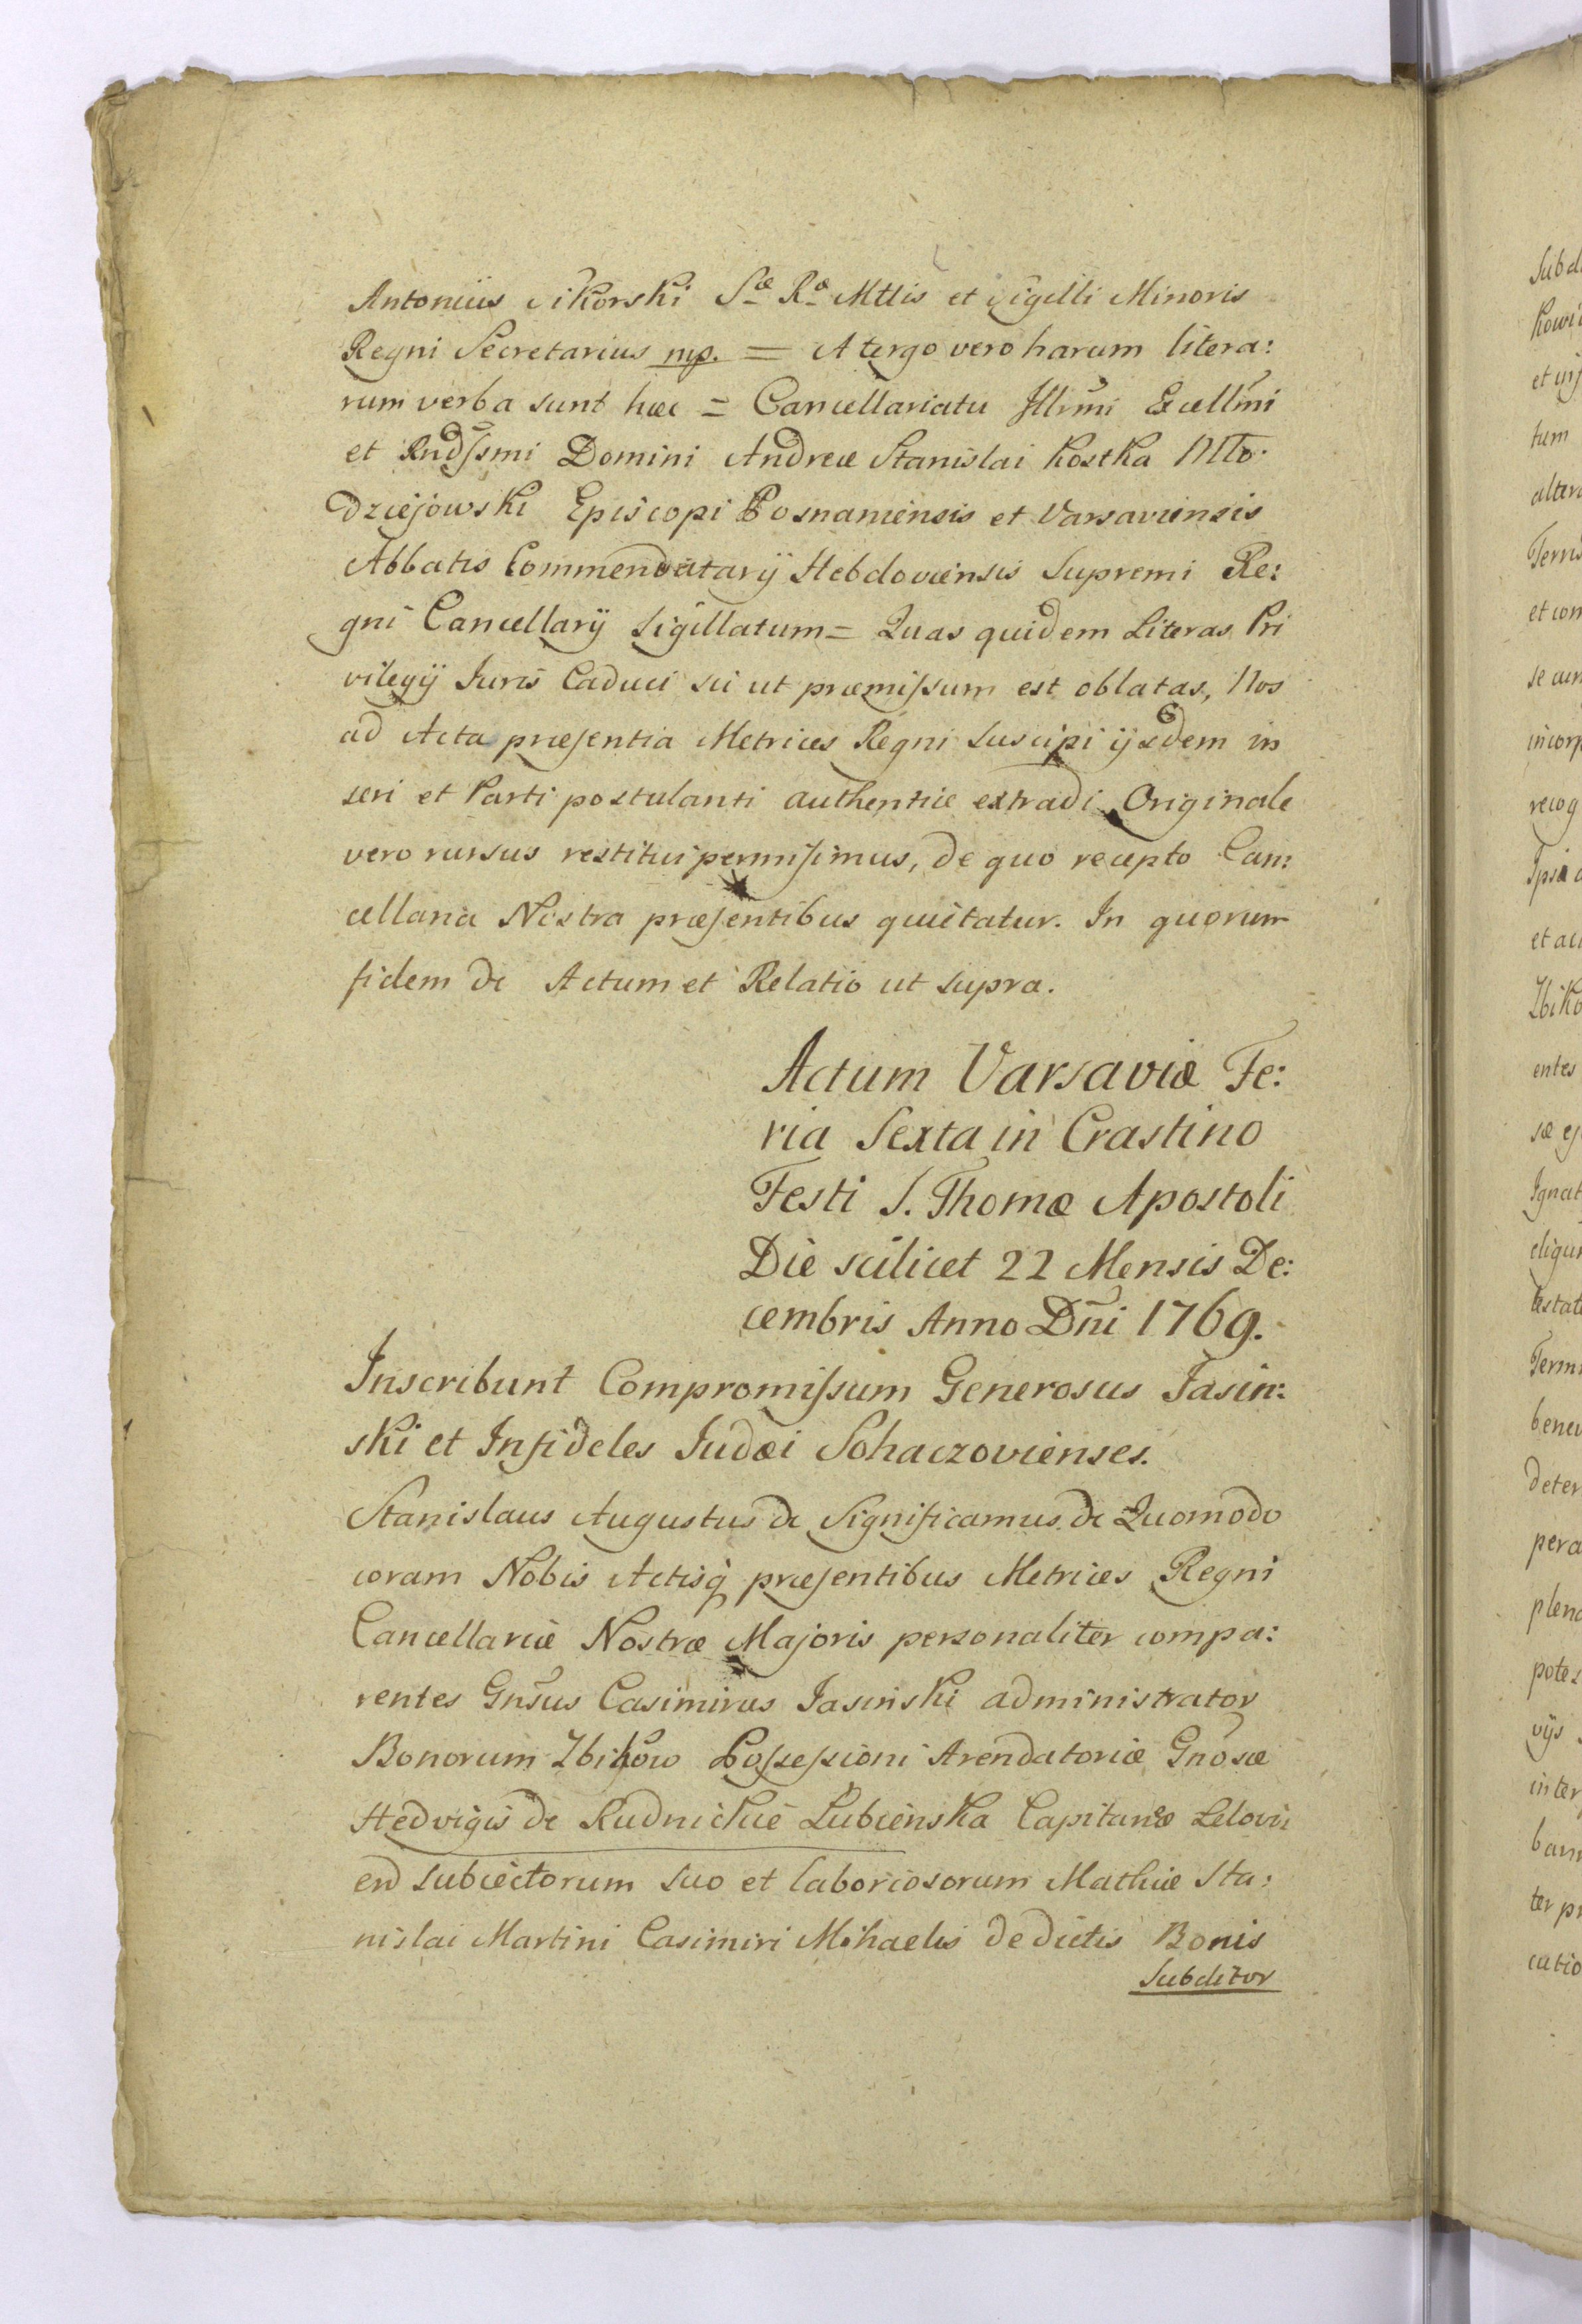 Antonius Sikorski Sæ Ræ Mttis et Sigilli Minoris
Regni Secretarius mp. = A tergo vero harum litera:
rum verba sunt hæc = Cancellariatu Illrm̃i Excellm̃i
et Rnd̃ſsmi Domini Andreæ Stanislai Kostka Mło
dziejowski Episcopi Posnaniensis et Varsaviensis
Abbatis Commendatarij Hebdoviensis Supremi Re:
gni Cancellarij Sigillatum = Quas quidem Literas Pri
vilegij Juris Caduci sic ut præmiſsum est oblatas, Nos
ad Acta præſentia Metrices Regni suscipi ijsdem in
seri et Parti postulanti authentice extradi Originale
vero rursus restitui permiſimus, de quo recepto Can:
cellaria Nostra præſentibus quietatur. In quorum
fidem &c Actum et Relatio ut supra.
Actum Varsaviæ Fe:
ria Sexta in Crastino
Festi S. Thomæ Apostoli
Die scilicet 22 Mensis De:
cembris Anno Dñi 1769.
Inscribunt Compromiſsum Generosus Jasin:
ski et Infideles Judæi Sohaczovienses.
Stanislaus Augustus &c Significamus &c Quomodo
coram Nobis Actisq̃ præſentibus Metrices Regni
Cancellariæ Nostræ Majoris personaliter compa:
rentes Gnsũs Casimirus Jasinski administrator
Bonorum Zbikow Poſseſsioni Arendatoriæ Gnosæ
Hedvigis de Rudnickie Lubienska Capitaneæ Lelovi
en subiectorum suo et laboriosorum Mathiæ Sta:
nislai Martini Casimiri Mihaelis de dictis Bonis
Subditor